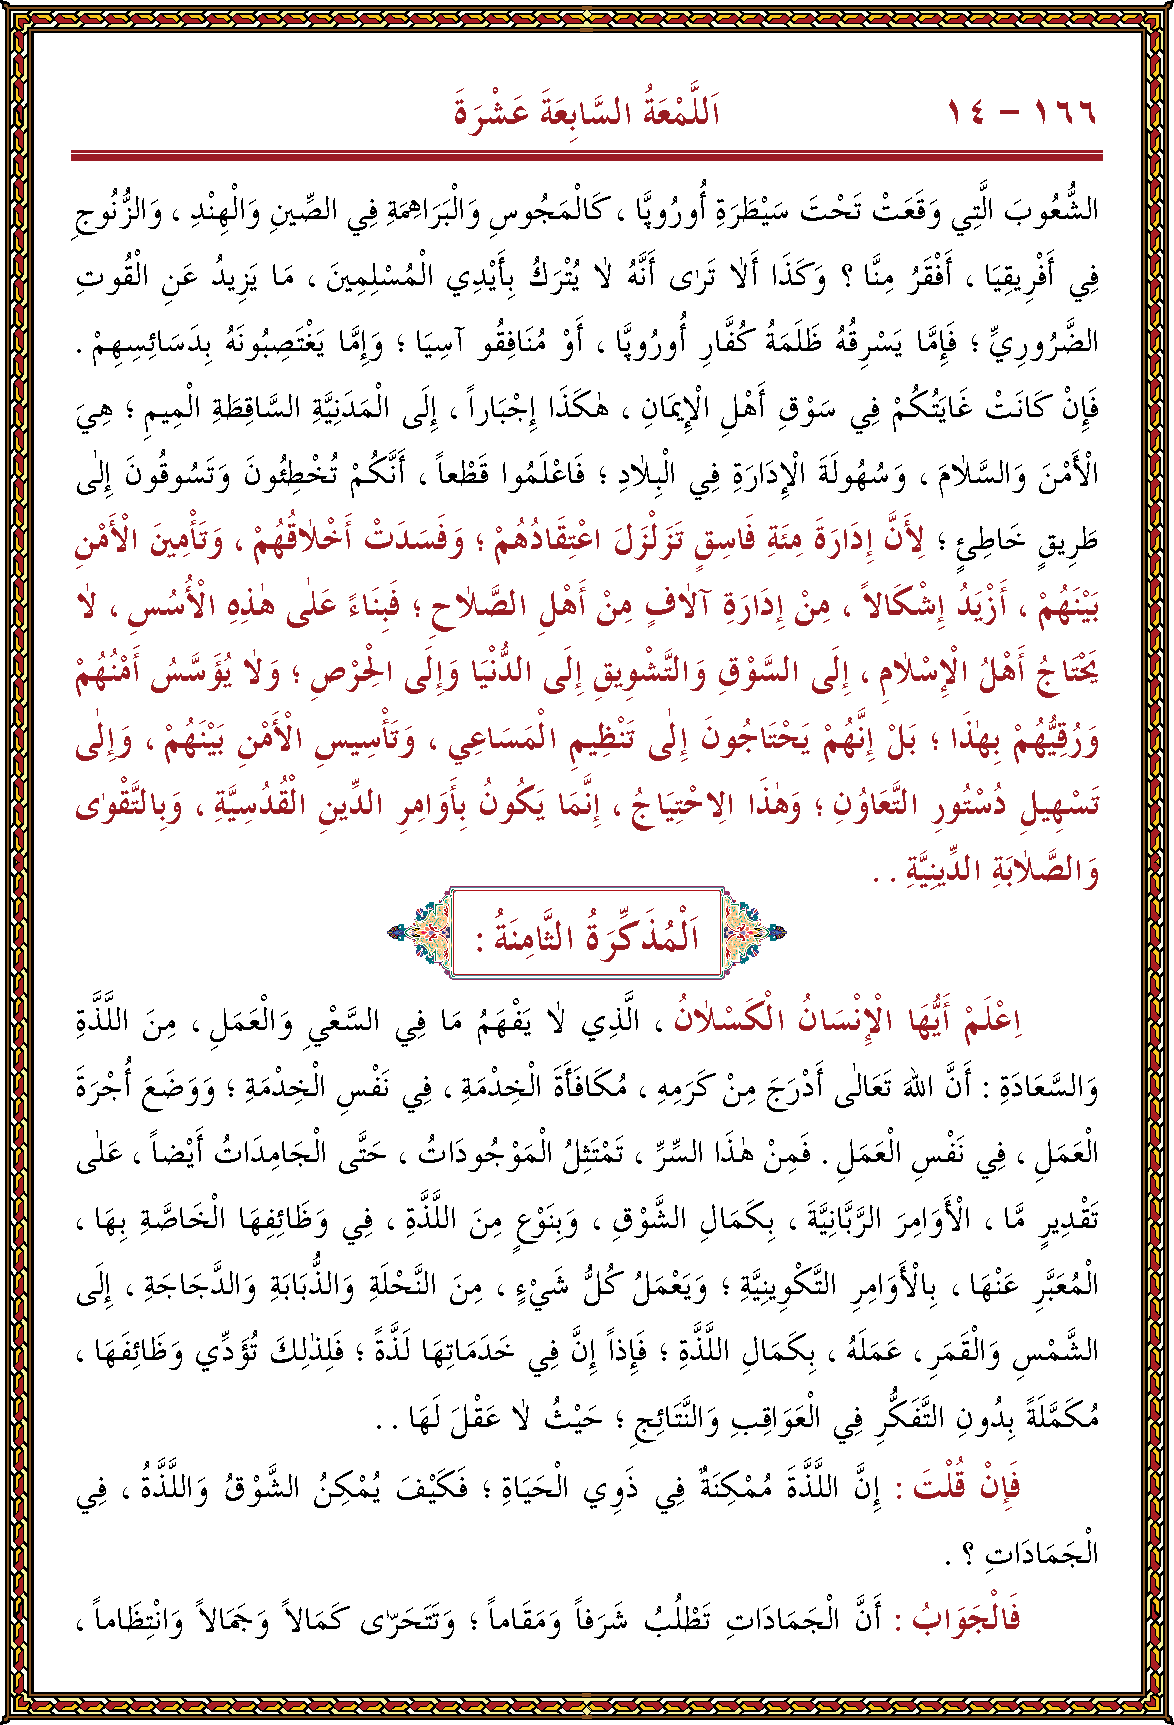 ١٦٦ – ١٤ اَللَّمْعَةُ السَّابِعَةَ عَشْرَةَ
الشُّعُوبَ الَّتِي وَقَعَتْ تَحْتَ سَيْطَرَةِ أُورُوپَّا ، كَالْمَجُوسِ وَالْبَرَاهِمَةِ فِي الصِّينِ وَالْهِنْدِ ، وَالزُّنُوجِ
فِي أَفْرِيقِيَا ، أَفْقَرُ مِنَّا ؟ وَكَذَا أَلاَ تَرٰى أَنَّهُ لاٰ يُتْرَكُ بِأَيْدِي الْمُسْلِمِينَ ، مَا يَزِيدُ عَنِ الْقُوتِ
الضَّرُورِيِّ ؛ فَإِمَّا يَسْرِقُهُ ظَلَمَةُ كُفَّارِ أُورُوپَّا ، أَوْ مُنَافِقُو آسِيَا ؛ وَإِمَّا يَغْتَصِبُونَهُ بِدَسَائِسِهِمْ .
فَإِنْ كَانَتْ غَايَتُكُمْ فِي سَوْقِ أَهْلِ الْإِيمَانِ ، هٰكَذَا إِجْبَاراً ، إِلَى الْمَدَنِيَّةِ السَّاقِطَةِ الْمِيمِ ؛ هِيَ
الْأَمْنَ وَالسَّلاَمَ ، وَسُهُولَةَ الْإِدَارَةِ فِي الْبِلاٰدِ ؛ فَاعْلَمُوا قَطْعاً ، أَنَّكُمْ تُخْطِئُونَ وَتَسُوقُونَ إِلَىٰ
طَرِيقٍ خَاطِئٍ ؛ لِأَنَّ إِدَارَةَ مِئَةِ فَاسِقٍ تَزَلْزَلَ اعْتِقَادُهُمْ ؛ وَفَسَدَتْ أَخْلاٰقُهُمْ ، وَتَأْمِينَ الْأَمْنِ
بَيْنَهُمْ ، أَزْيَدُ إِشْكَالاً ، مِنْ إِدَارَةِ آلاٰفٍ مِنْ أَهْلِ الصَّلاٰحِ ؛ فَبِنَاءً عَلٰى هٰذِهِ الْأُسُسِ ، لاٰ
يَحْتَاجُ أَهْلُ الْإِسْلاٰمِ ، إِلَى السَّوْقِ وَالتَّشْوِيقِ إِلَى الدُّنْيَا وَإِلَى الْحِرْصِ ؛ وَلاٰ يُؤَسَّسُ أَمْنُهُمْ
وَرُقِيُّهُمْ بِهٰذَا ؛ بَلْ إِنَّهُمْ يَحْتَاجُونَ إِلَىٰ تَنْظِيمِ الْمَسَاعِي ، وَتَأْسِيسِ الْأَمْنِ بَيْنَهُمْ ، وَإِلَىٰ
تَسْهِيلِ دُسْتُورِ التَّعَاوُنِ ؛ وَهٰذَا الِاحْتِيَاجُ ، إِنَّمَا يَكُونُ بِأَوَامِرِ الدِّينِ الْقُدْسِيَّةِ ، وَبِالتَّقْوٰى
وَالصَّلاٰبَةِ الدِّينِيَّةِ . .
اَلْمُذَكِّرَةُ الثَّامِنَةُ :
اِعْلَمْ أَيُّهَا الْإِنْسَانُ الْكَسْلاٰنُ ، الَّذِي لاَ يَفْهَمُ مَا فِي السَّعْيِ وَالْعَمَلِ ، مِنَ اللَّذَّةِ
وَالسَّعَادَةِ : أَنَّ اللهَ تَعَالٰى أَدْرَجَ مِنْ كَرَمِهِ ، مُكَافَأَةَ الْخِدْمَةِ ، فِي نَفْسِ الْخِدْمَةِ ؛ وَوَضَعَ أُجْرَةَ
الْعَمَلِ ، فِي نَفْسِ الْعَمَلِ . فَمِنْ هٰذَا السِّرِّ ، تَمْتَثِلُ الْمَوْجُودَاتُ ، حَتَّى الْجَامِدَاتُ أَيْضاً ، عَلٰى
تَقْدِيرٍ مَّا ، الْأَوَامِرَ الرَّبَّانِيَّةَ ، بِكَمَالِ الشَّوْقِ ، وَبِنَوْعٍ مِنَ اللَّذَّةِ ، فِي وَظَائِفِهَا الْخَاصَّةِ بِهَا ،
الْمُعَبَّرِ عَنْهَا ، بِالْأَوَامِرِ التَّكْوِينِيَّةِ ؛ وَيَعْمَلُ كُلُّ شَيْءٍ ، مِنَ النَّحْلَةِ وَالذُّبَابَةِ وَالدَّجَاجَةِ ، إِلَى
الشَّمْسِ وَالْقَمَرِ ، عَمَلَهُ ، بِكَمَالِ اللَّذَّةِ ؛ فَإِذاً إِنَّ فِي خَدَمَاتِهَا لَذَّةً ؛ فَلِذٰلِكَ تُؤَدِّي وَظَائِفَهَا ،
مُكَمَّلَةً بِدُونِ التَّفَكُّرِ فِي الْعَوَاقِبِ وَالنَّتَائِجِ ؛ حَيْثُ لاٰ عَقْلَ لَهَا . .
فَإِنْ قُلْتَ : إِنَّ اللَّذَّةَ مُمْكِنَةٌ فِي ذَوِي الْحَيَاةِ ؛ فَكَيْفَ يُمْكِنُ الشَّوْقُ وَاللَّذَّةُ ، فِي
الْجَمَادَاتِ ؟ .
فَالْجَوَابُ : أَنَّ الْجَمَادَاتِ تَطْلُبُ شَرَفاً وَمَقَاماً ؛ وَتَتَحَرَّى كَمَالاً وَجَمَالاً وَانْتِظَاماً ،